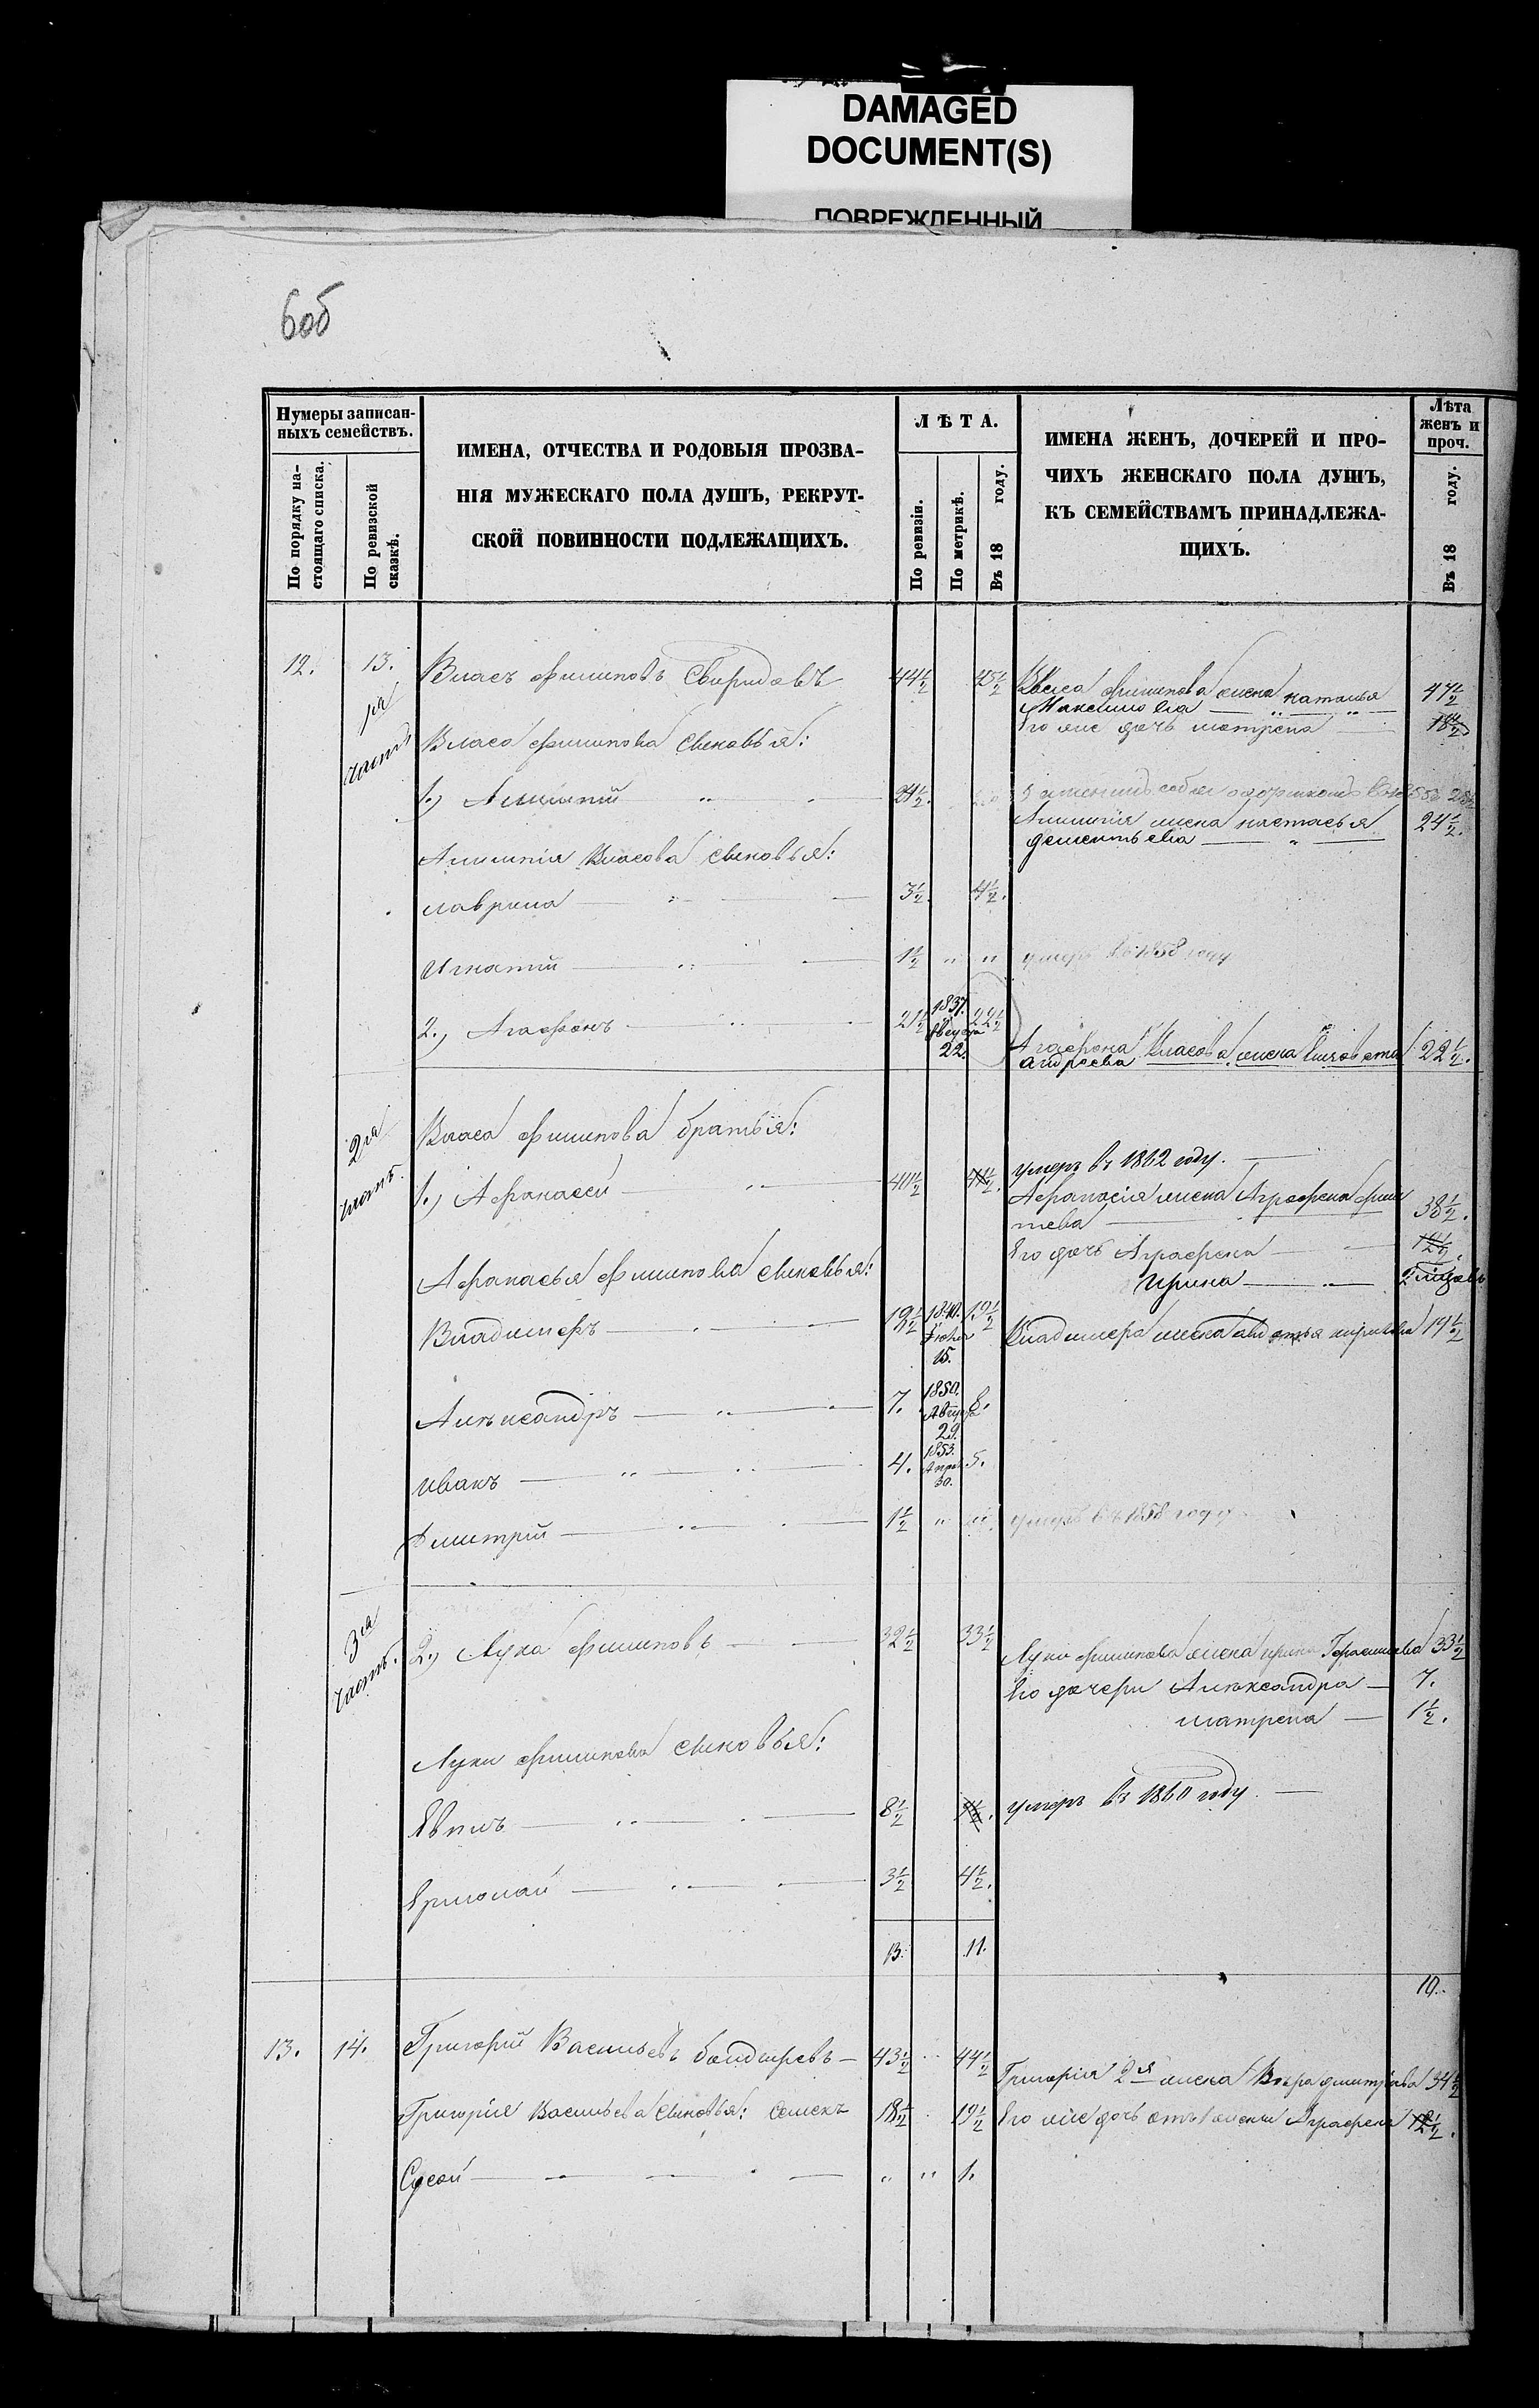 DAMAGED
DOCUMENT(S)
ПОВРЕЖДЕННЫЙ
6об
Нумеры записан-
ныхъ семействъ.
По порядку на-
стоящаго списка.
По ревизской
сказкѣ.
ИМЕНА, ОТЧЕСТВА И РОДОВЫЯ ПРОЗВА-
НІЯ МУЖЕСКАГО ПОЛА ДУШЪ, РЕКРУТ-
СКОЙ ПОВИННОСТИ ПОДЛЕЖАЩИХЪ.
ЛѢТА.
По ревизіи.
По метрикѣ.
Въ 18 году.
ИМЕНА ЖЕНЪ, ДОЧЕРЕЙ И ПРО-
ЧИХЪ ЖЕНСКАГО ПОЛА ДУШЪ,
КЪ СЕМЕЙСТВАМЪ ПРИНАДЛЕЖА-
ЩИХЪ.
Лѣта
женъ и
проч.
Въ 18 году.
12. 13. Власъ Филиповъ Свиридовъ 44½ 45½ Власа Филипова жена наталья 47½
Максимова
Его же дочь матрена 18½
1я часть
Власа Филипова сыновья:
1.) 24½.
жена настасья 24½.
дементьева
Власова сыновья:
лаврила 3½. 4½.
Игнатій 1½ " " умеръ въ 1858 году
2.) Агафонъ 21½ 1837. Августа 22. 22½
Агафона Власова жена 22½.
андреева
2я часть.
Власа Филипова братья:
1.) Афанасей 40½ 41½. умеръ въ 1862 году.
Афанасія жена Аграфена 38½.
Его дочь Аграфена 12½.
Ирина
Афанасья Филипова сыновья:
Владимеръ 18½ 1840. Іюля 15. 19½ Владимера жена авдотья 19½
Алѣксандръ 7. 1850. Августа 29. 8.
иванъ 4. 1853. Апрѣ 30. 5.
Дмитрій 1½ " " умеръ въ 1858 году
3я часть.
2.) Лука Филиповъ 32½ 33½
Луки Филипова жена ирина Герасимова 33½
Его дочери Алѣксандра 7.
матрена 1½.
Луки Филипова сыновья:
8½ 9½. умеръ въ 1860 году.
Ермолай 3½ 4½.
13. 11.
10.
13. 14. Григорій Васильевъ 43½ 44½
Григорія 2я жена Вѣра дмитріева 34½
Григорія Васильева сыновья: Семенъ 18½ 19½ Его же дочь отъ 1 жены Аграфена 12½.
Сысой " " 1.